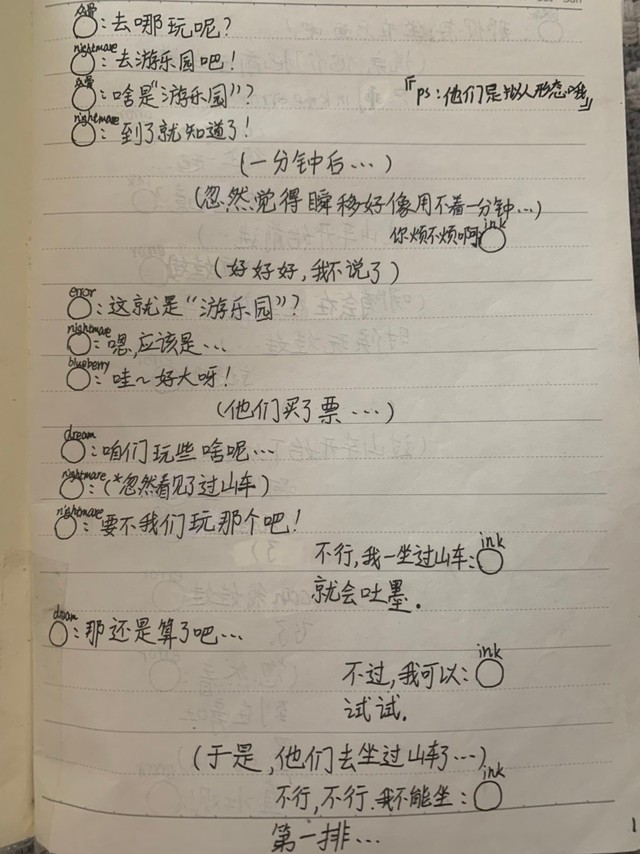 众骨：去哪玩呢？
nightmare：去游乐园吧！
众骨：啥是“游乐园”？
『ps：他们是拟人形态哦』
nightmare：到了就知道了！
（一分钟后…）
（忽然觉得瞬移好像用不着一分钟…）
你烦不烦啊 ink
（好好好，我不说了）
error：这就是“游乐园”？
nightmare：嗯，应该是…
blueberry：哇～好大呀！
（他们买了票…）
dream：咱们玩些啥呢…
nightmare：（*忽然看见了过山车）
nightmare：要不我们玩那个吧！
不行，我一坐过山车：ink
就会吐墨．
dream：那还是算了吧…
不过，我可以：ink
试试．
（于是，他们去坐过山车了…）
不行，不行．我不能坐：ink
第一排…
1